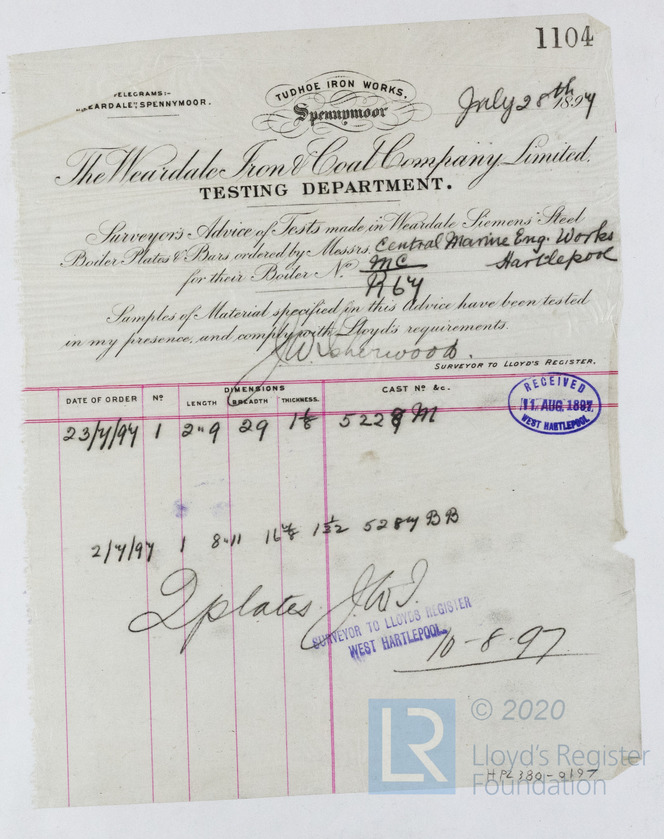 1104
TELEGRAMS:-
"WEARDALE" SPENNYMOOR.
TUDHOE IRON WORKS,
Spennymoor
July 28th 1897
The Weardale Iron & Coal Company Limited.
TESTING DEPARTMENT.
Surveyor's Advice of Tests made in Weardale Siemens Steel
Boiler Plates & Bars, ordered by Messrs. Central Marine Eng. Works
Hartlepool
for their Boiler No. MC
R 67
Samples of Material specified in this Advice have been tested
in my presence, and comply with Lloyd's requirements.
SURVEYOR TO LLOYD'S REGISTER.
DATE OF ORDER No DIMENSIONS CAST No &c.
LENGTH BREADTH THICKNESS.
RECEIVED
11 AUG. 1897
WEST HARTLEPOOL
23/7/97 1 2"9 29 1 1/8 M
2/7/97 1 8-11 16 7/8 1 1/32 5287 BB
2 plates
SURVEYOR TO LLOYDS REGISTER
WEST HARTLEPOOL.
10-8-97
LR
© 2020
Lloyd's Register
Foundation
HPL380-0197